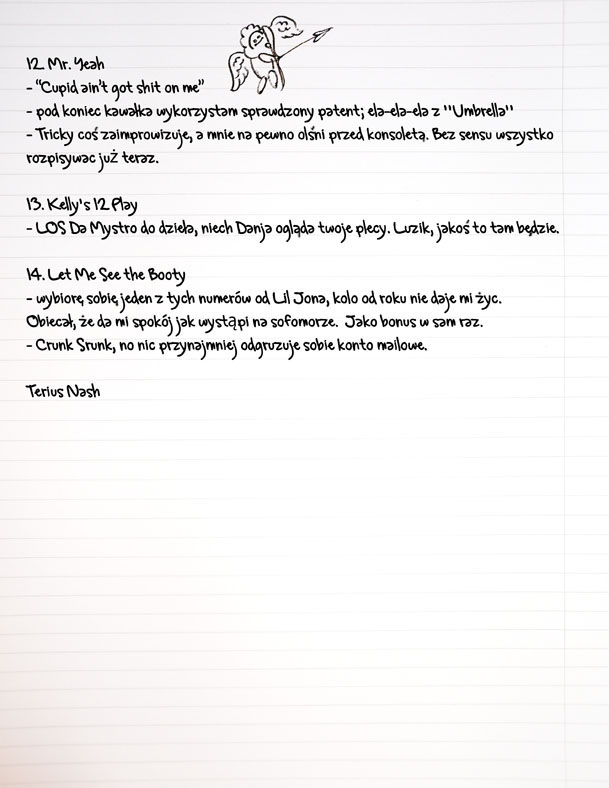 12. Mr. Yeah
- "Cupid ain't got shit on me"
- pod koniec kawałka wykorzystam sprawdzony patent; ela-ela-ela z ''Umbrella''
- Tricky coś zaimprowizuje, a mnie na pewno olśni przed konsoletą. Bez sensu wszystko
rozpisywac już teraz.
13. Kelly's 12 Play
- LOS Da Mystro do dzieła, niech Danja ogląda twoje plecy. Luzik, jakoś to tam będzie.
14. Let Me See the Booty
- wybiorę sobię jeden z tych numerów od Lil Jona, kolo od roku nie daje mi życ.
Obiecał, że da mi spokój jak wystąpi na sofomorze. Jako bonus w sam raz.
- Crunk Srunk, no nic przynajmniej odgruzuje sobie konto mailowe.
Terius Nash